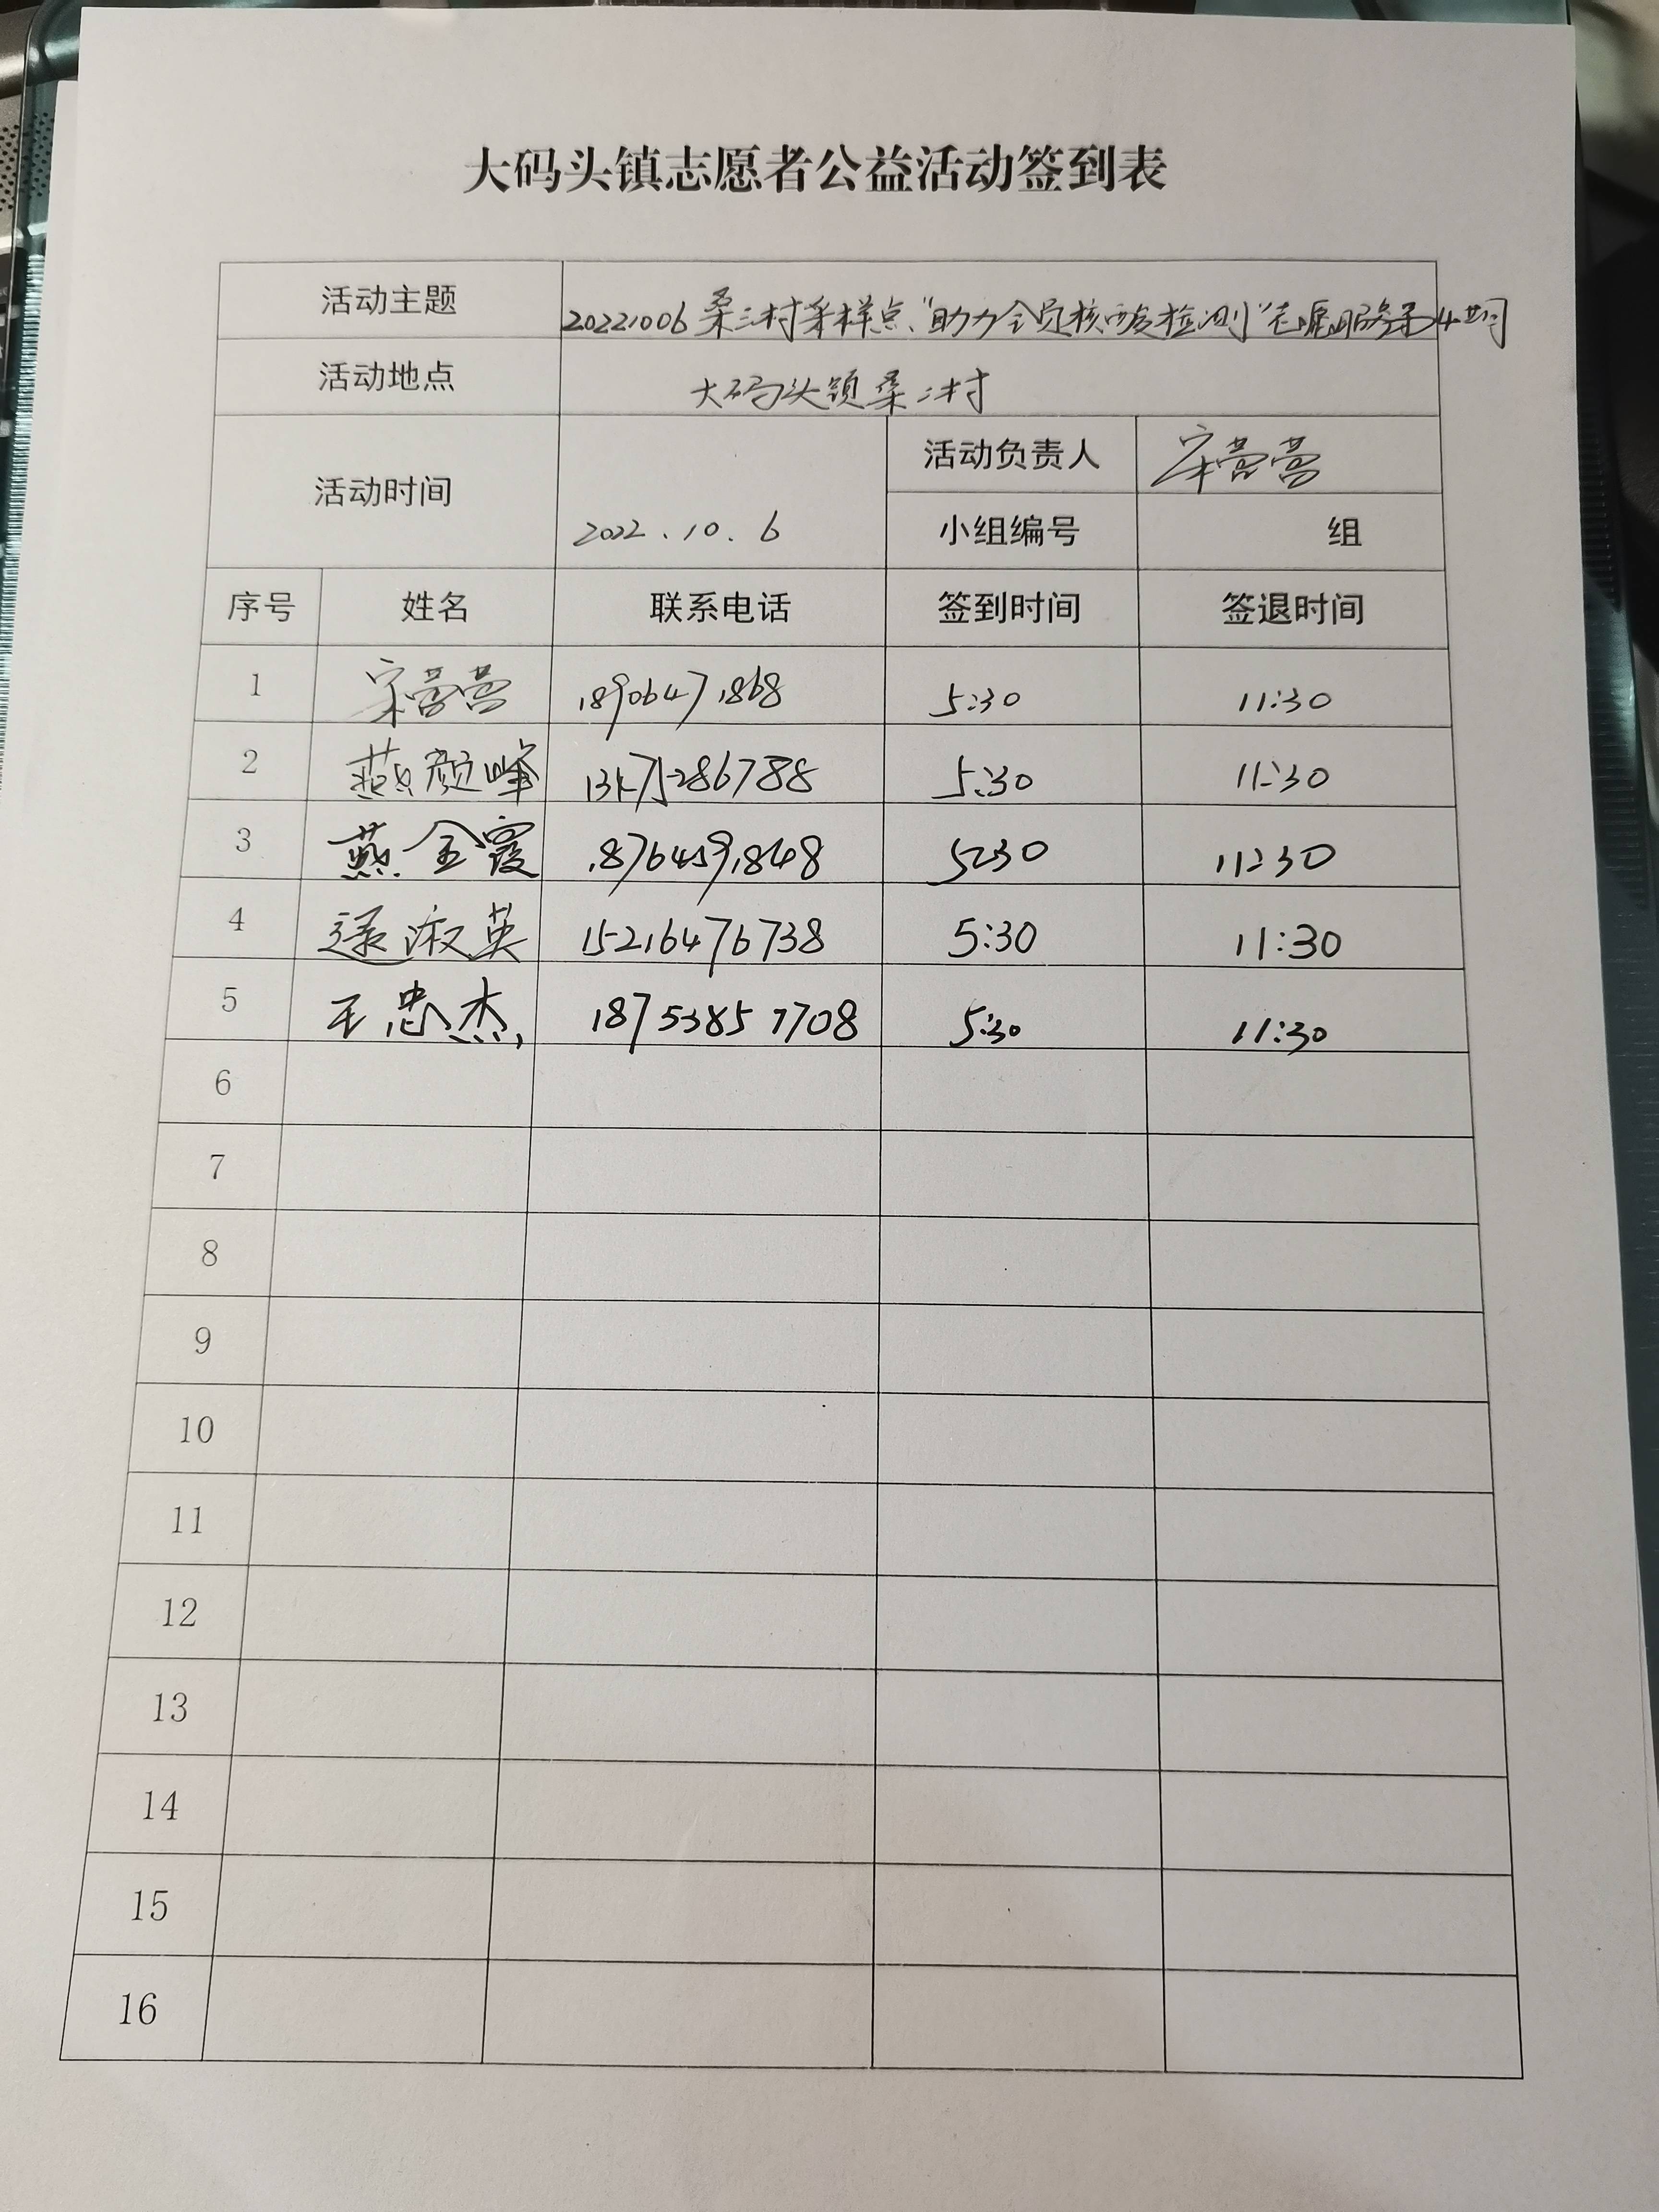 大码头镇志愿者公益活动签到表
活动主题 20221006桑三村采样点“助力全员核酸检测”志愿服务第4期
活动地点 大码头镇桑二村
活动时间 2022.10.6 活动负责人 宋营营
小组编号 组
序号 姓名 联系电话 签到时间 签退时间
1 宋营营 18906471868 5:30 11:30
2 燕颜峰 13475286788 5:30 11:30
3 燕金霞 18764591848 5:30 11:30
4 逯淑英 15216476738 5:30 11:30
5 王忠杰 18753857708 5:30 11:30
6
7
8
9
10
11
12
13
14
15
16